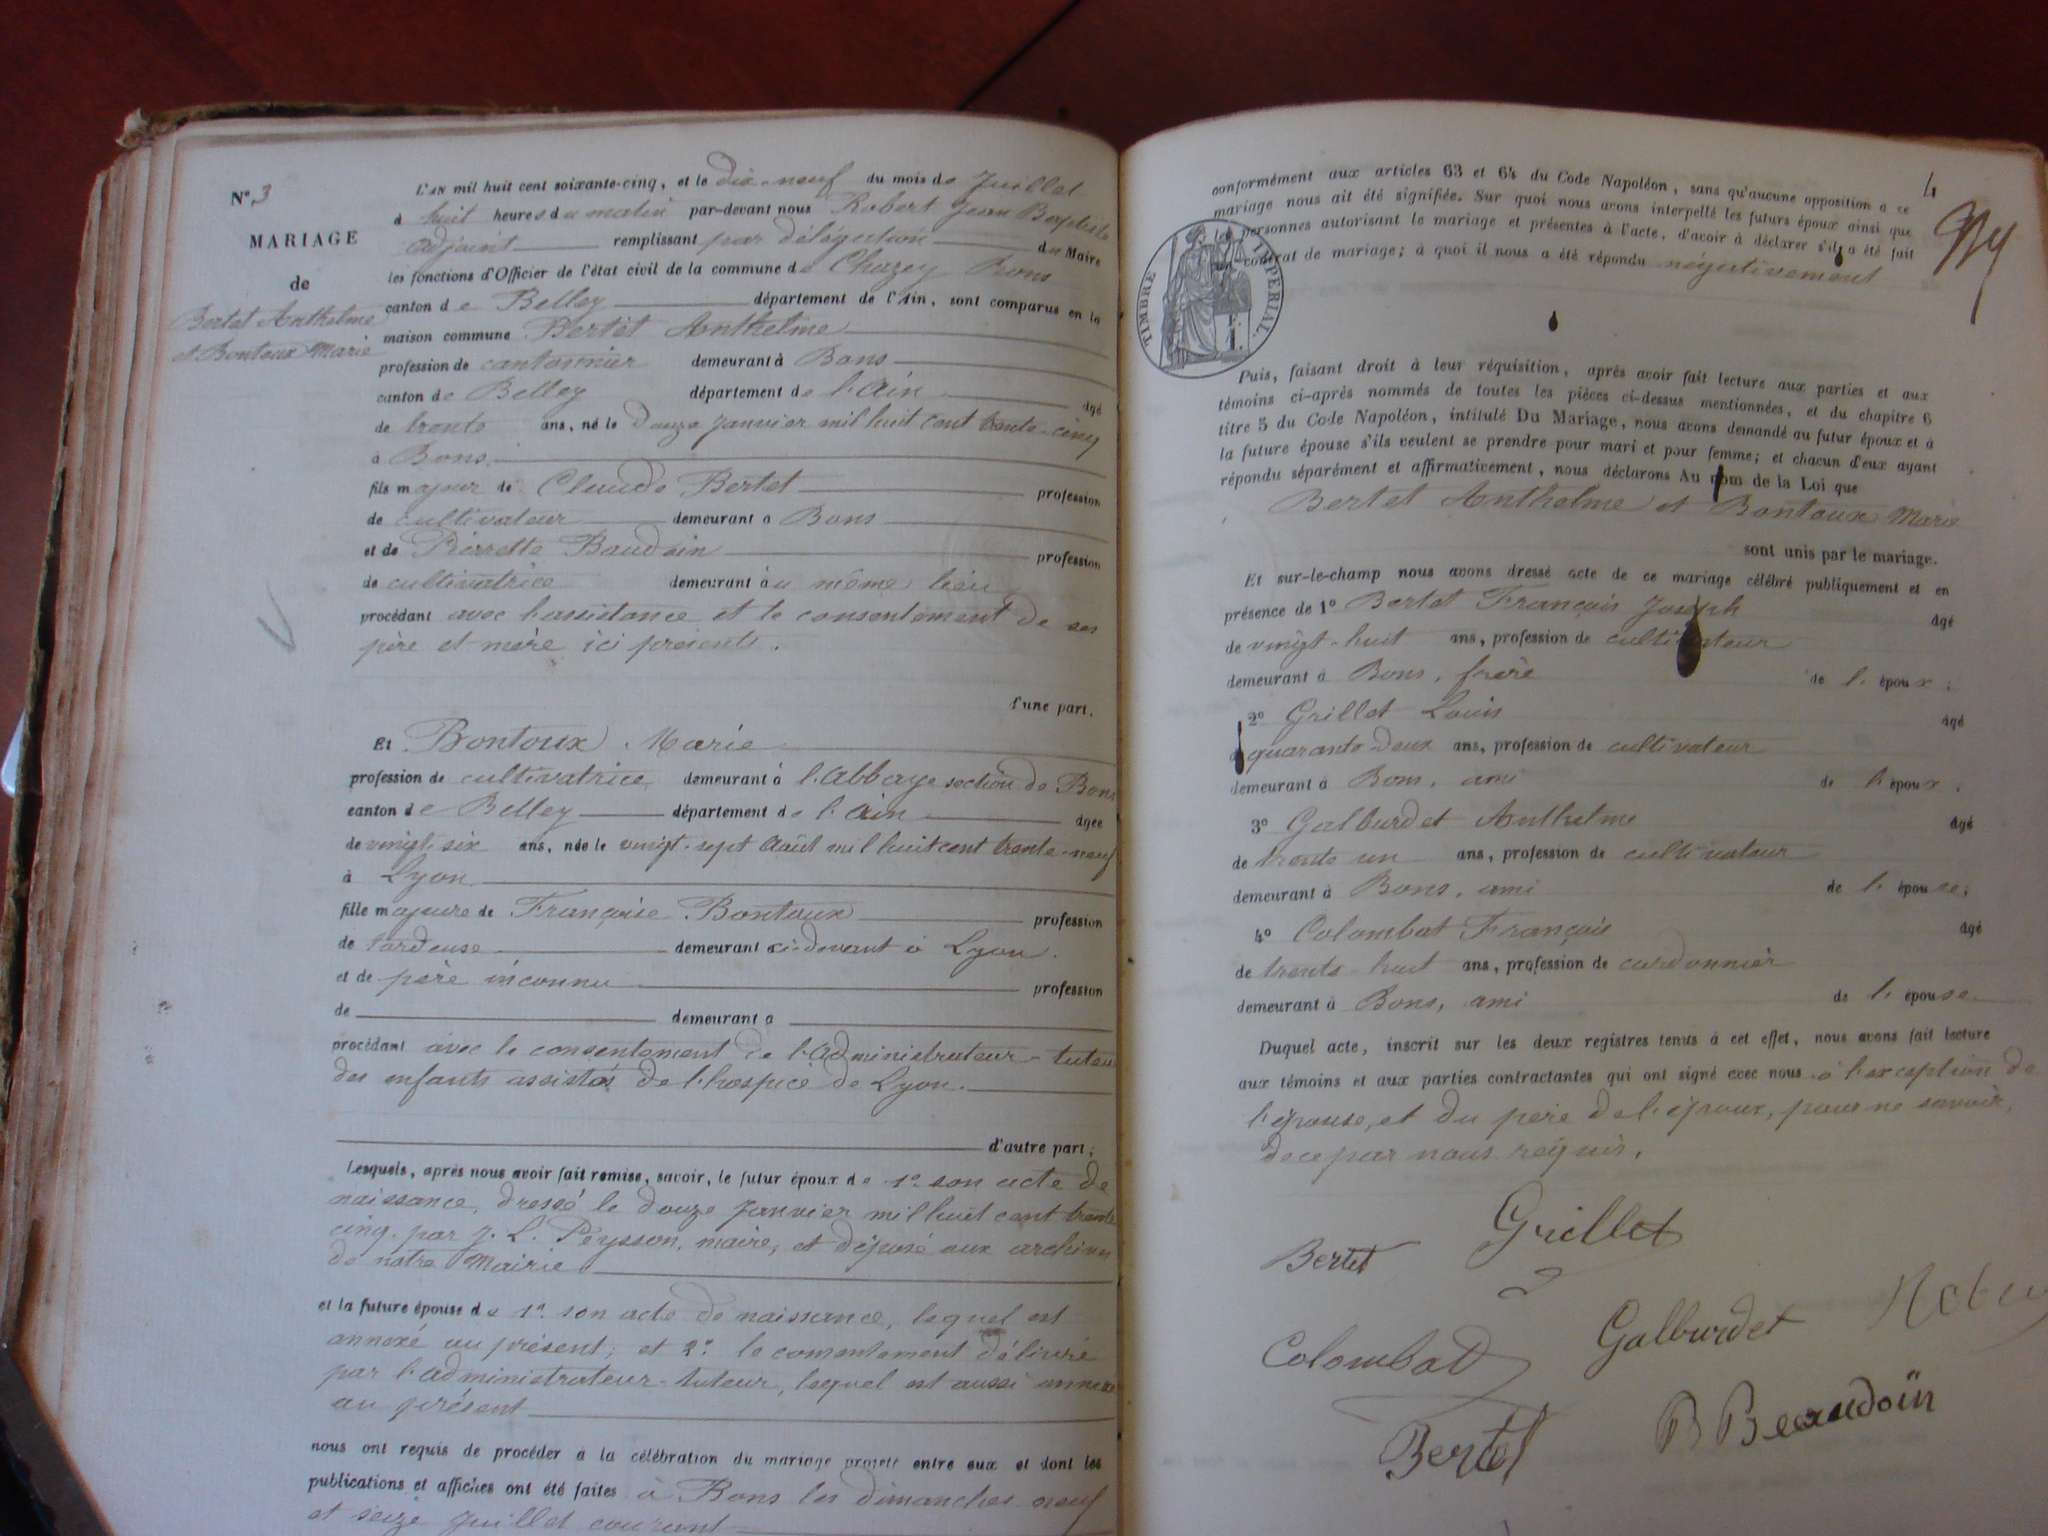 N° 3
MARIAGE
de
Bertet Anthelme
et Bontoux Marie
L'AN mil huit cent soixante-cinq, et le dix-neuf du mois de Juillet
à huit heures du matin par-devant nous Robert Jean Baptiste
adjoint remplissant par délégation du Maire
les fonctions d'Officier de l'état civil de la commune de Chazey Bons
canton de Belley département de l'Ain, sont comparus en la
maison commune Bertet Anthelme
profession de cantonnier demeurant à Bons
canton de Belley département de l'Ain âgé
de trente ans, né le Douze Janvier mil huit cent trente-cinq
à Bons
fils majeur de Claude Bertet profession
de cultivateur demeurant à Bons
et de Pierrette Baudoin profession
de cultivatrice demeurant au même lieu
procédant avec l'assistance et le consentement de ses
père et mère ici présents.
d'une part.
Et Bontoux Marie
profession de cultivatrice demeurant à l'Abbaye section de Bons
canton de Belley département de l'Ain âgée
de vingt-six ans, née le vingt-sept Août mil huit cent trente-neuf
à Lyon
fille majeure de Françoise Bontoux profession
de demeurant ci-devant à Lyon.
et de père inconnu profession
de demeurant à
procédant avec le consentement de l'Administrateur-tuteur
des enfants assistés de l'hospice de Lyon.
d'autre part;
Lesquels, après nous avoir fait remise, savoir, le futur époux de 1° son acte de
naissance, dressé le douze Janvier mil huit cent trente
cinq, par J. L. Peysson, maire, et déposé aux archives
de notre Mairie
et la future épouse de 1° son acte de naissance, lequel est
annexé au présent; et 2° le consentement délivré
par l'Administrateur-tuteur, lequel est aussi annexé
au présent
nous ont requis de procéder à la célébration du mariage projeté entre eux et dont les
publications et affiches ont été faites à Bons les dimanches neuf
et seize Juillet courant
4
conformément aux articles 63 et 64 du Code Napoléon, sans qu'aucune opposition à ce
mariage nous ait été signifiée. Sur quoi nous avons interpellé les futurs époux ainsi que
les personnes autorisant le mariage et présentes à l'acte, d'avoir à déclarer s'il a été fait
un contrat de mariage; à quoi il nous a été répondu négativement
TIMBRE IMPÉRIAL.
Puis, faisant droit à leur réquisition, après avoir fait lecture aux parties et aux
témoins ci-après nommés de toutes les pièces ci-dessus mentionnées, et du chapitre 6
titre 5 du Code Napoléon, intitulé Du Mariage, nous avons demandé au futur époux et à
la future épouse s'ils veulent se prendre pour mari et pour femme; et chacun d'eux ayant
répondu séparément et affirmativement, nous déclarons Au nom de la Loi que
Bertet Anthelme et Bontoux Marie
sont unis par le mariage.
Et sur-le-champ nous avons dressé acte de ce mariage célébré publiquement et en
présence de 1° Bertet François Joseph âgé
de vingt-huit ans, profession de cultivateur
demeurant à Bons, frère de l'époux;
2° Grillet Louis âgé
de quarante-deux ans, profession de cultivateur
demeurant à Bons, ami de l'époux;
3° Galburdet Anthelme âgé
de trente un ans, profession de cultivateur
demeurant à Bons, ami de l'épouse;
4° Colombat François âgé
de trente-huit ans, profession de cordonnier
demeurant à Bons, ami de l'épouse
Duquel acte, inscrit sur les deux registres tenus à cet effet, nous avons fait lecture
aux témoins et aux parties contractantes qui ont signé avec nous à l'exception de
l'épouse, et du père de l'époux, pour ne savoir,
de ce par nous requis.
Grillet
Bertet
Colombat
Galburdet
Bertet
B Beaudoin